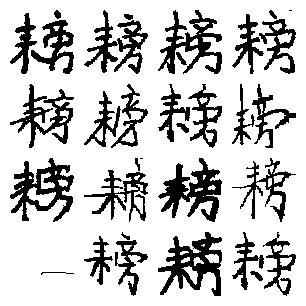 耪耪耪耪
耪耪耪耪
耪耪耪耪
一耪耪耪